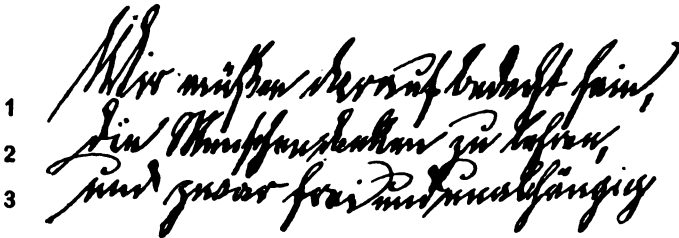 Wir müßen darauf bedacht sein,
1
die Menschen denken zu lehren,
2
und zwar frei und unabhängig
3